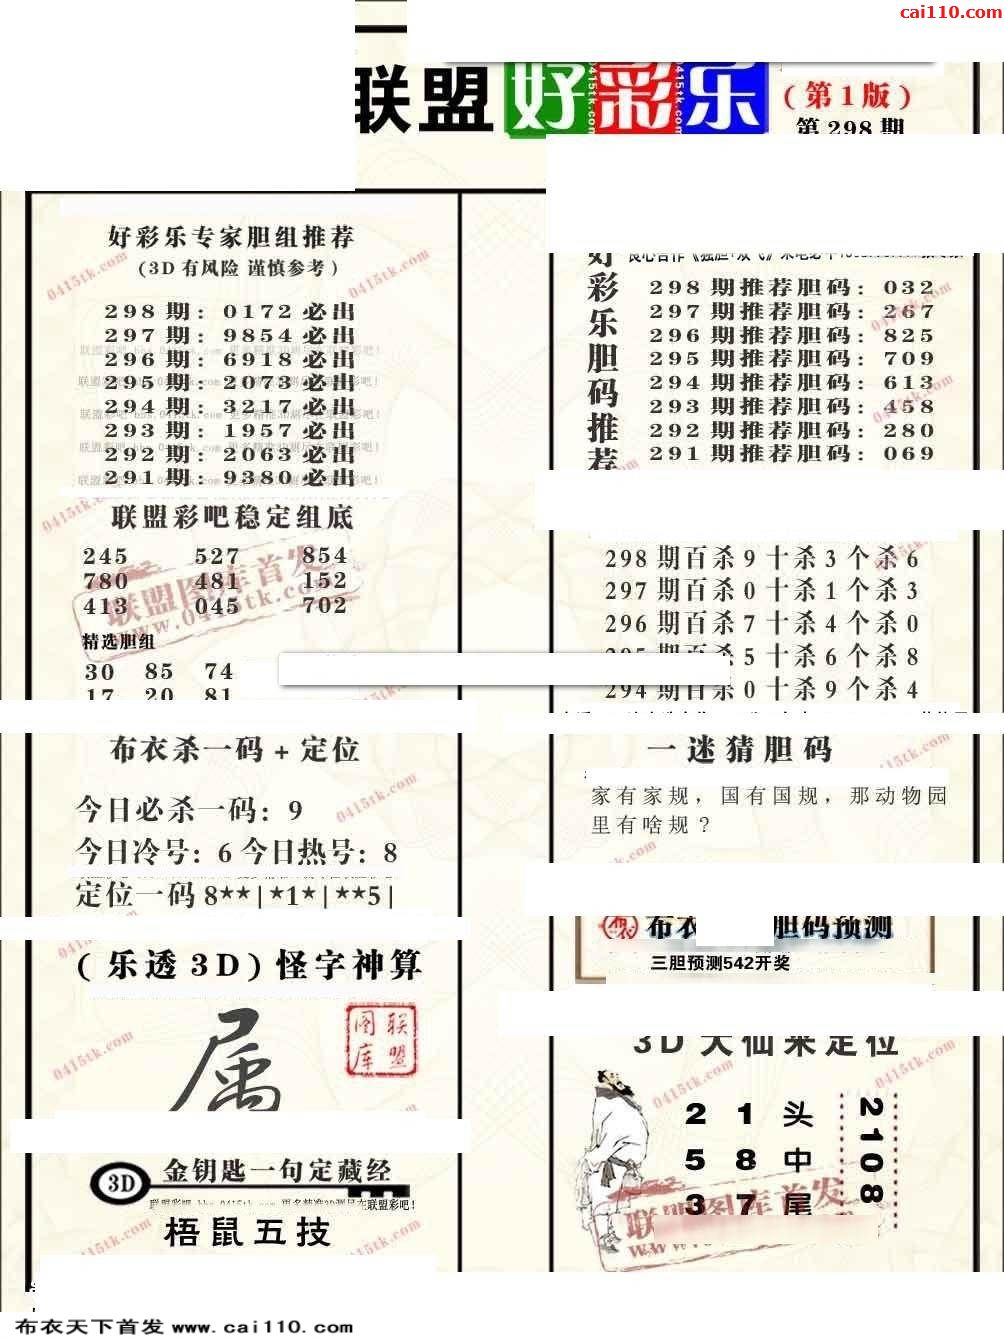 cai110.com
联盟好彩乐
(第1版)
第298期
好彩乐专家胆组推荐
(3D有风险 谨慎参考)
298期: 0172必出
297期: 9854必出
296期: 6918必出
295期: 2073必出
294期: 3217必出
293期: 1957必出
292期: 2063必出
291期: 9380必出
联盟彩吧稳定组底
245 527 854
780 481 152
413 045 702
精选胆组
30 85 74
17 20 81
布衣杀一码+定位
今日必杀一码: 9
今日冷号: 6 今日热号: 8
定位一码 8**|*1*|**5|
(乐透3D)怪字神算
属
联盟图库
3D
金钥匙一句定藏经
梧鼠五技
好彩乐胆码推荐
298期推荐胆码: 032
297期推荐胆码: 267
296期推荐胆码: 825
295期推荐胆码: 709
294期推荐胆码: 613
293期推荐胆码: 458
292期推荐胆码: 280
291期推荐胆码: 069
298期百杀9十杀3个杀6
297期百杀0十杀1个杀3
296期百杀7十杀4个杀0
295期百杀5十杀6个杀8
294期百杀0十杀9个杀4
一迷猜胆码
家有家规，国有国规，那动物园
里有啥规？
布衣
胆码预测
三胆预测542开奖
3D大仙来定位
2 1 头
5 8 中
3 7 尾
2108
联盟图库首发
www.0415tk.com
0415tk.com
布衣天下首发 www.cai110.com